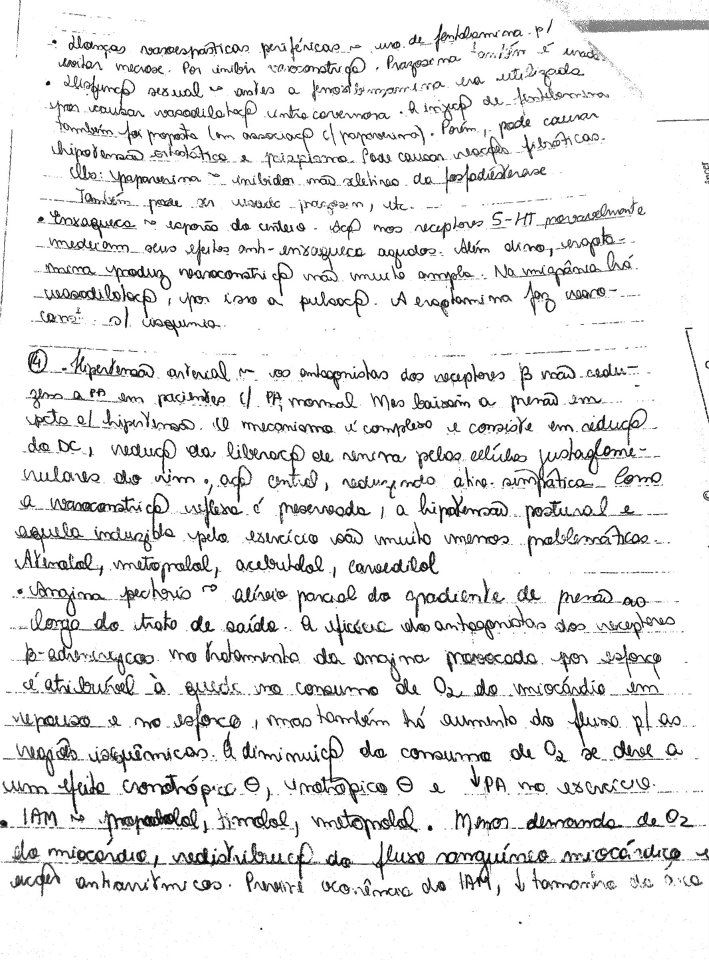 • Doenças vasoespásticas periféricas ~ uso de fentolamina p/
evitar necrose. Por inibir vasoconstriçφ. Prazosina também é usada
• Disfunçφ sexual ~ antes a fenoxibenzamina era utilizada
por causar vasodilataçφ intracavernosa. A injeçφ de fentolamina
também foi proposta (em associaçφ c/ papaverina). Porém, pode causar
hipotensão ortostática e priapismo. Pode causar reações fibróticas.
Obs: papaverina ~ inibidor não seletivo da fosfodiesterase
Também pode ser usado prazosin, etc.
• Enxaqueca ~ esporão do centeio. Açφ nos receptores 5-HT provavelmente
medeiam seus efeitos anti-enxaqueca agudos. Além disso, ergota-
mina produz vasoconstriçφ não muito ampla. Na migrânia há
vasodilataçφ, por isso a pulsaçφ. A ergotamina faz vaso-
s/ isquemia.
④ • Hipertensão arterial ~ os antagonistas dos receptores β não redu-
zem a PA em pacientes c/ PA normal Mas baixam a pressão em
c/ hipertensão. O mecanismo é complexo e consiste em reduçφ
do DC, reduçφ da liberaçφ de renina pelas células justaglome-
rulares do rim, açφ central, reduzindo ativ. simpática Como
a vasoconstriçφ reflexa é preservada, a hipotensão postural e
aquela induzida pelo exercício são muito menos problemáticas.
Atenolol, metoprolol, acebutolol, carvedilol
• Angina pectoris ~ alívio parcial do gradiente de pressão ao
longo do trato de saída. A eficácia dos antagonistas dos receptores
β-adrenérgicos no tratamento da angina provocada por esforço
é atribuível à queda no consumo de O2 do miocárdio em
repouso e no esforço, mas também há aumento do fluxo p/ as
regiões isquêmicas. A diminuiçφ do consumo de O2 se deve a
um efeito cronotrópico ⊖, inotrópico ⊖ e ↓PA no exercício.
• IAM ~ propanolol, timolol, metoprolol. Menos demanda de O2
do miocárdio, redistribuiçφ do fluxo sanguíneo miocárdico e
ações antiarrítmicas. Previne ocorrência do IAM, ↓ tamanho da área